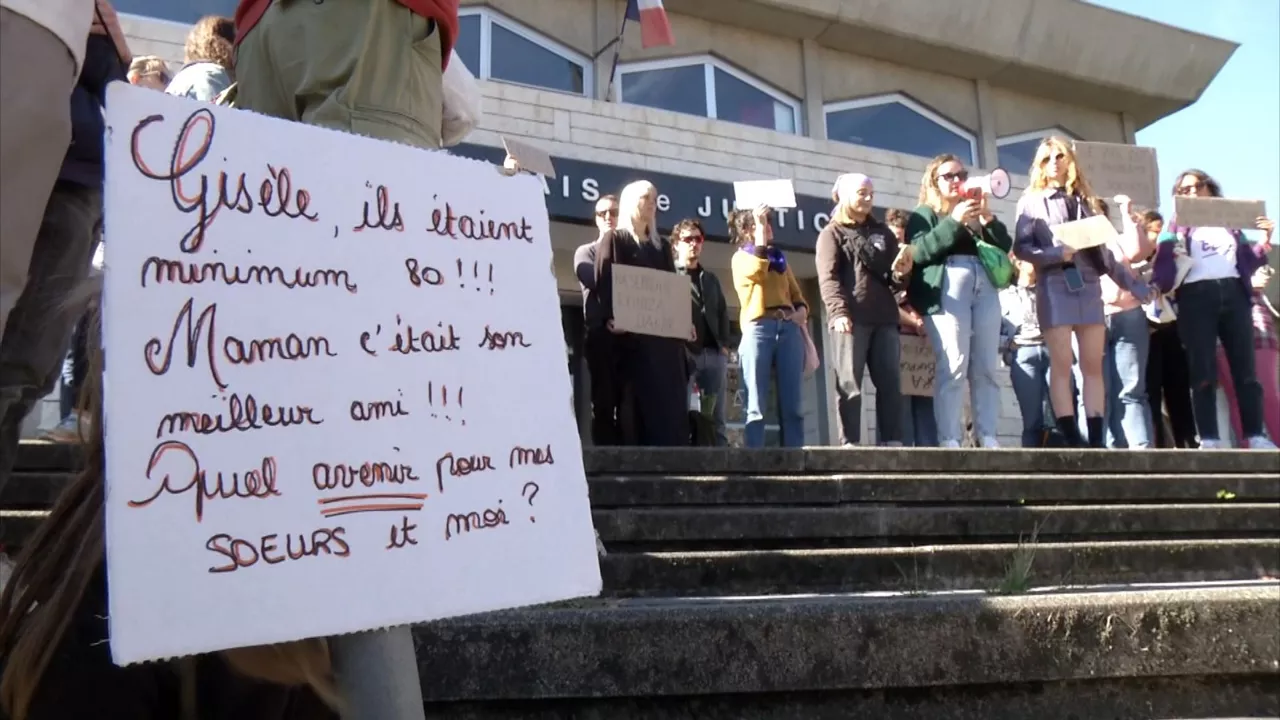 Gisèle, ils étaient
minimum 80 !!!
Maman c'était son
meilleur ami !!!
Quel avenir pour mes
SOEURS et moi ?
AIS DE JUSTIC